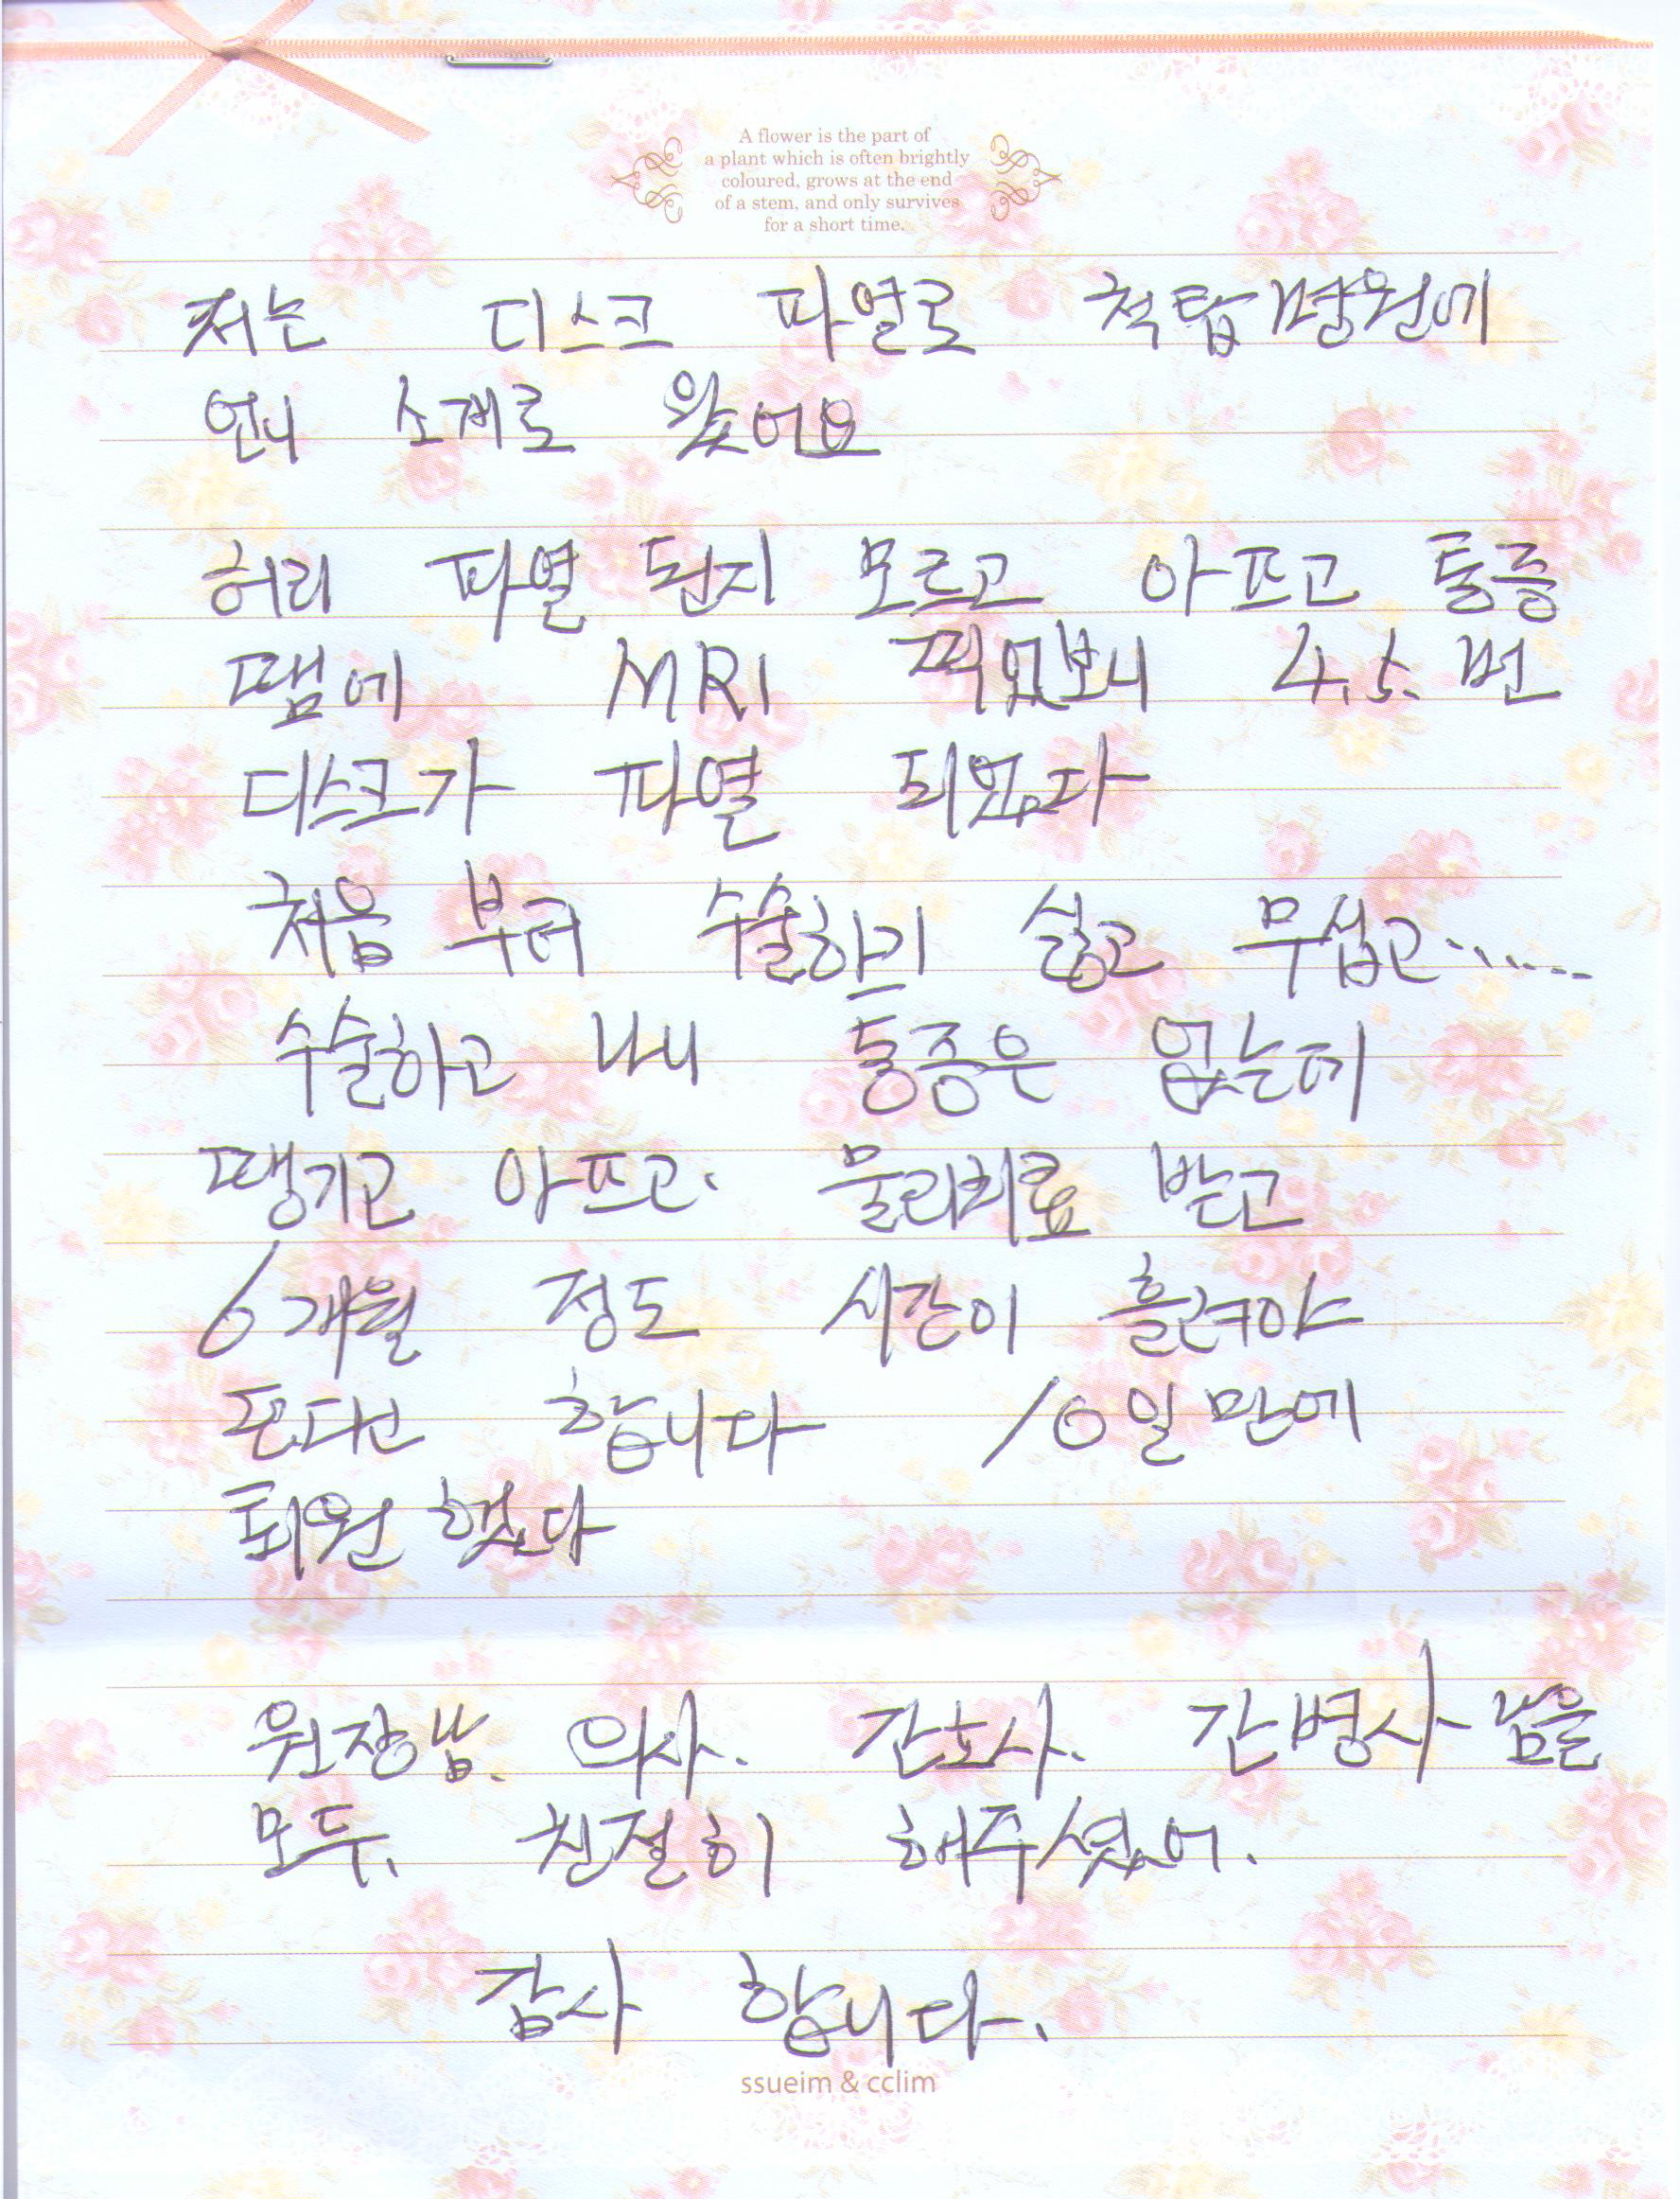 A flower is the part of
a plant which is often brightly
coloured, grows at the end
of a stem, and only survives
for a short time.
저는 디스크 파열로 척탑병원에
언니 소개로 왔어요
허리 파열 된지 모르고 아프고 통증
땜에 MRI 찍었보니 4.5.번
디스크가 파열 되었다
처음 부터 수술하기 싫고 무섭고......
수술하고 나니 통증은 없는데
땡기고 아프고. 물리치료 받고
6개월 정도 시간이 흘려야
된다고 합니다 10일만에
퇴원 했다
원장님. 의사. 간호사. 간병사님은
모두. 친절히 해주셨어.
감사 합니다.
ssueim & cclim